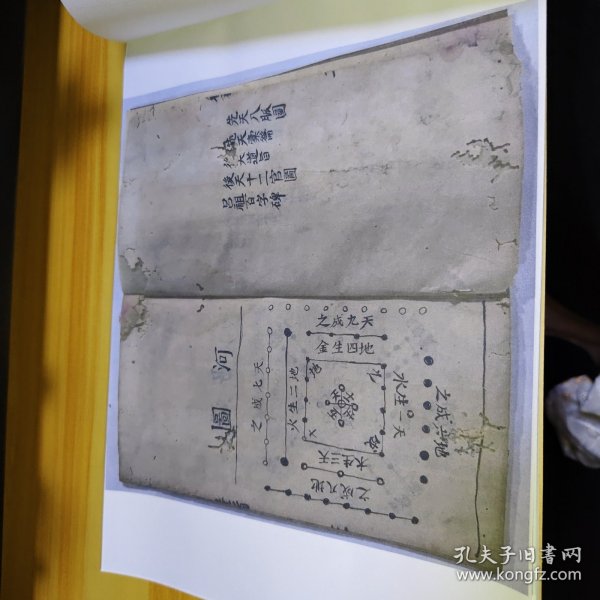 先天八脈圖
大道旨
後天十二官圖
呂祖百字碑
河圖
天九成之
地四生金
天七成之
地二生火
天一生水
地六成之
天三生木
地八成之
孔夫子旧书网
www.kongfz.com